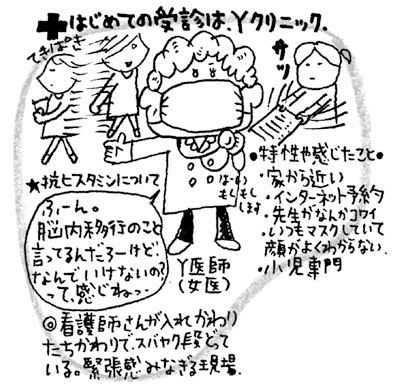 はじめての受診は、Yクリニック.
てきぱき
サッ
●特性や感じたこと●
・家から近い
・インターネット予約
・先生がなんかコワイ
・いつもマスクしていて
顔がよくわからない.
・小児専門
もしもし
します
★抗ヒスタミンについて
ふーん。
脳内移行のこと
言ってるんだろーけど、
なんでいけないの?
って、感じねっ.
Y医師
(女医)
◎看護師さんが入れかわり
たちかわりで、スバヤク段どって
いる。緊張感みなぎる現場.